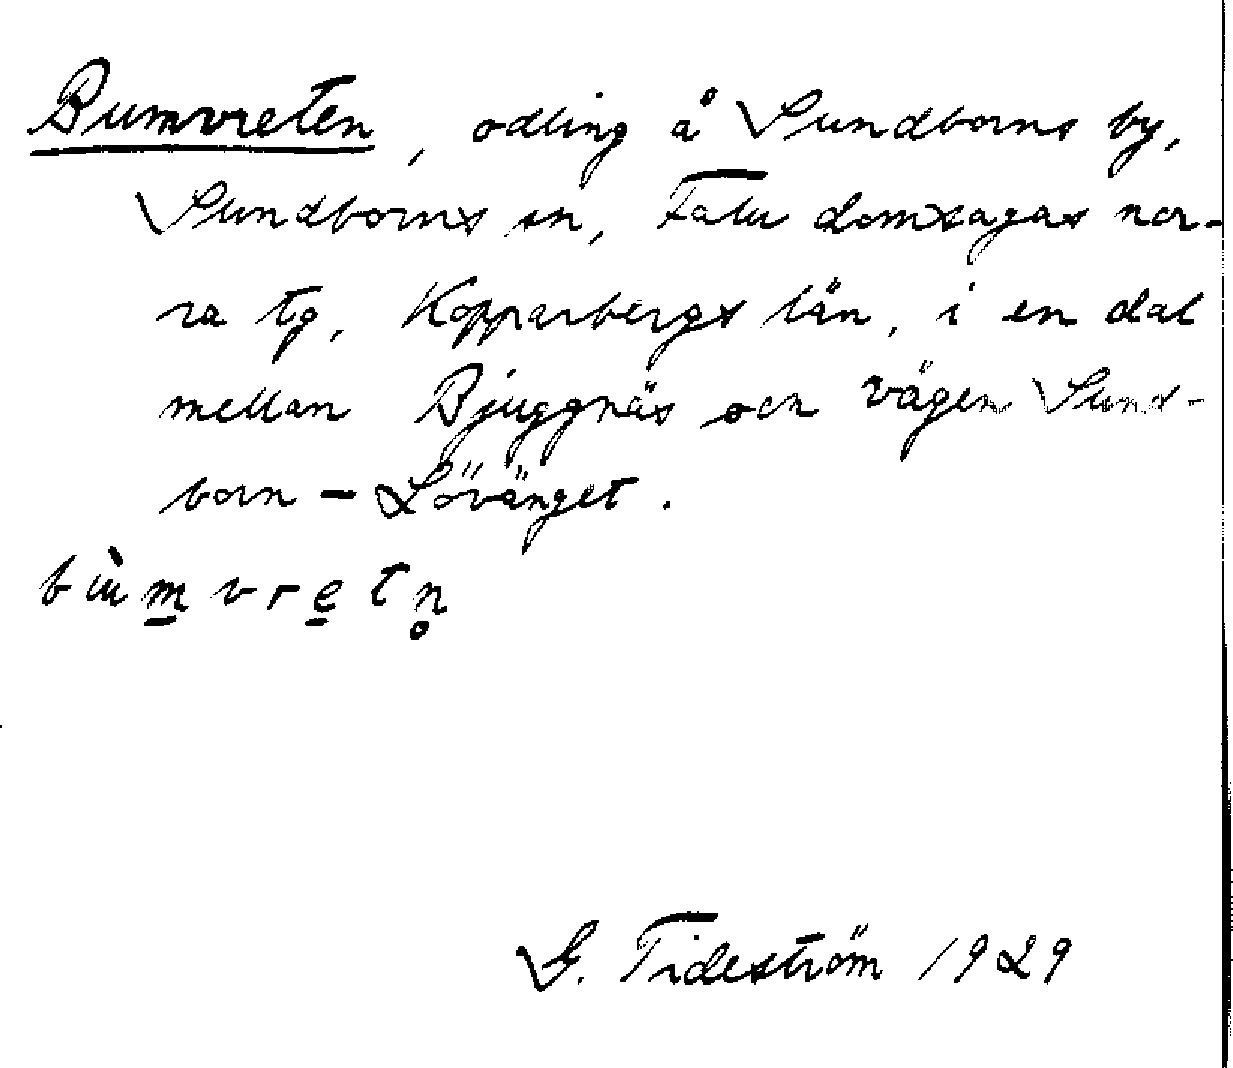 Bumvreten, odling å Sundborns by,
Sundborns sn, Falu domsagas nor-
ra tg, Kopparbergs län, i en dal
mellan Bjuggnäs och vägen Sund-
born - Lövänget.
bùm̲vre̲tn̥
G. Tideström 1929